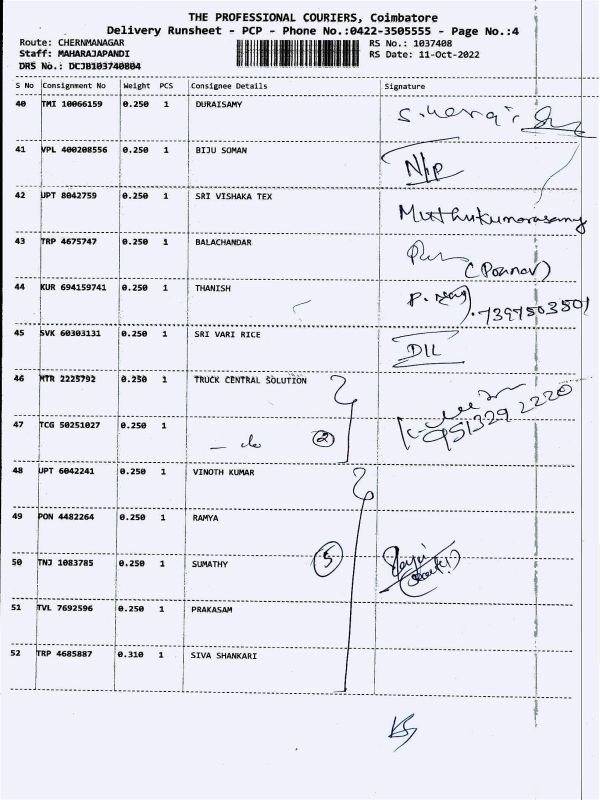 THE PROFESSIONAL COURIERS, Coimbatore
Delivery Runsheet - PCP - Phone No.:0422-3505555 - Page No.:4
Route: CHERNMANAGAR
RS No.: 1037408
Staff: MAHARAJAPANDI
RS Date: 11-Oct-2022
DRS No.: DCJB103740804
S No Consignment No Weight PCS Consignee Details Signature
40 TMI 10066159 0.250 1 DURAISAMY
41 VPL 400208556 0.250 1 BIJU SOMAN N/P
42 UPT 8042759 0.250 1 SRI VISHAKA TEX Muthukumarasamy
43 TRP 4675747 0.250 1 BALACHANDAR
44 KUR 694159741 0.250 1 THANISH 7397503501
45 SVK 60303131 0.250 1 SRI VARI RICE DIL
46 MTR 2225792 0.250 1 TRUCK CENTRAL SOLUTION
47 TCG 50251027 0.250 1 - do 2 9513292220
48 UPT 6042241 0.250 1 VINOTH KUMAR
49 PON 4482264 0.250 1 RAMYA
50 TNJ 1083785 0.250 1 SUMATHY 5
51 TVL 7692596 0.250 1 PRAKASAM
52 TRP 4685887 0.310 1 SIVA SHANKARI